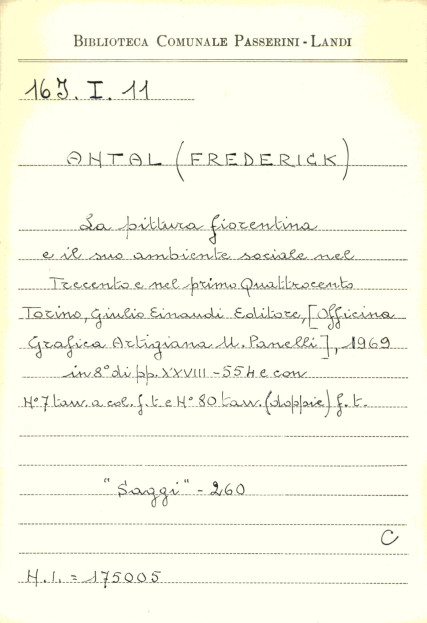 BIBLIOTECA COMUNALE PASSERINI-LANDI
16J. I. 11
ANTAL (FREDERICK)
La pittura fiorentina
e il suo ambiente sociale nel
Trecento e nel primo Quattrocento
Torino, Giulio Einaudi Editore, [Officina
Grafica Artigiana U. Panelli], 1969
in 8° di pp. XXVIII-554 e con
N°7 tav. a col. f.t. e N° 80 tav. (doppie) f.t.
"Saggi" - 260
C
N.I. = 175005